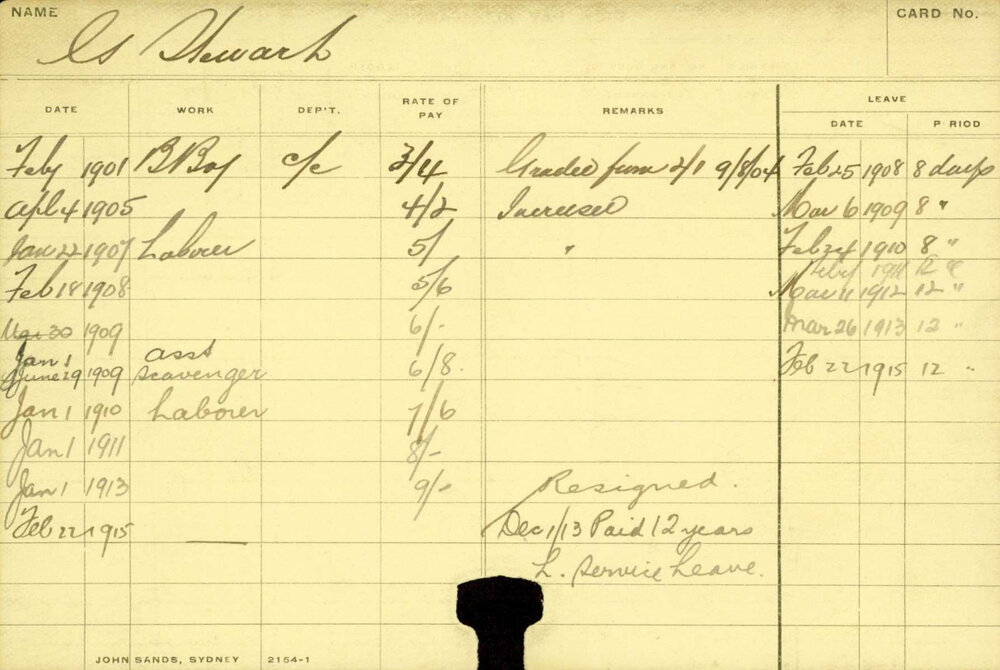 NAME
CARD No.
Stewart
LEAVE
DATE WORK DEP'T. RATE OF PAY REMARKS DATE P RIOD
Feby 1901 B Boy c/c 3/4 Graded from 2/1 9/8/04 Feb 25 1908 8 days
Apl 4 1905 4/2 Increased Mar 6 1909 8 "
Jan 22 1907 Laborer 5/ " Feb 24 1910 8 "
Feby 1911 12 "
Feb 18 1908 5/6 Mar 11 1912 12 "
30 1909 6/- Mar 26 1913 12 "
Jan 1 asst
June 29 1909 scavenger 6/8. Feb 22 1915 12 "
Jan 1 1910 Laborer 7/6
Jan 1 1911 8/-
Jan 1 1913 9/- Resigned.
Feb 22 1915 Dec 1/13 Paid 12 years
L. Service Leave.
JOHN SANDS, SYDNEY 2154-1